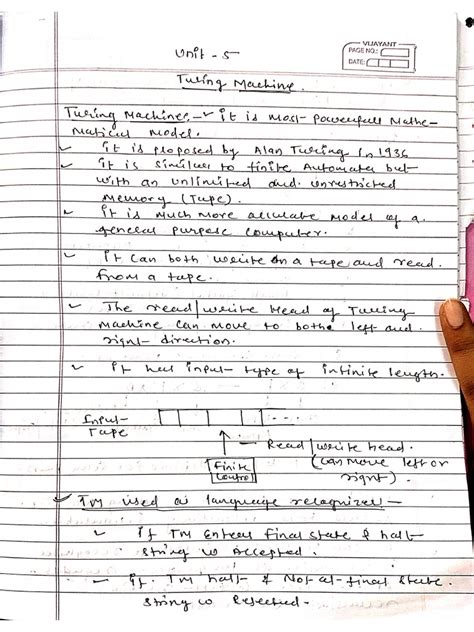 Unit - 5
VIJAYANT
PAGE NO.:
DATE:
Turing Machine.
Turing Machines - it is most powerfull Mathe-
matical model.
it is proposed by Alan Turing in 1936
it is similar to finite Automata but
with an unlimited and unrestricted
memory (Tape).
it is much more accurate model of a
general purpose computer.
it can both write on a tape and read
from a tape.
The read/write Head of Turing
machine can move to bothe left and
right direction.
it has input type of infinite length.
Input
Tape
....
Read/write head.
(can move left or
right).
Finite
Control
TM used as language recognizer -
if TM Enters final state & halt
string is Accepted.
if TM halt & Not at final state.
string is Rejected.